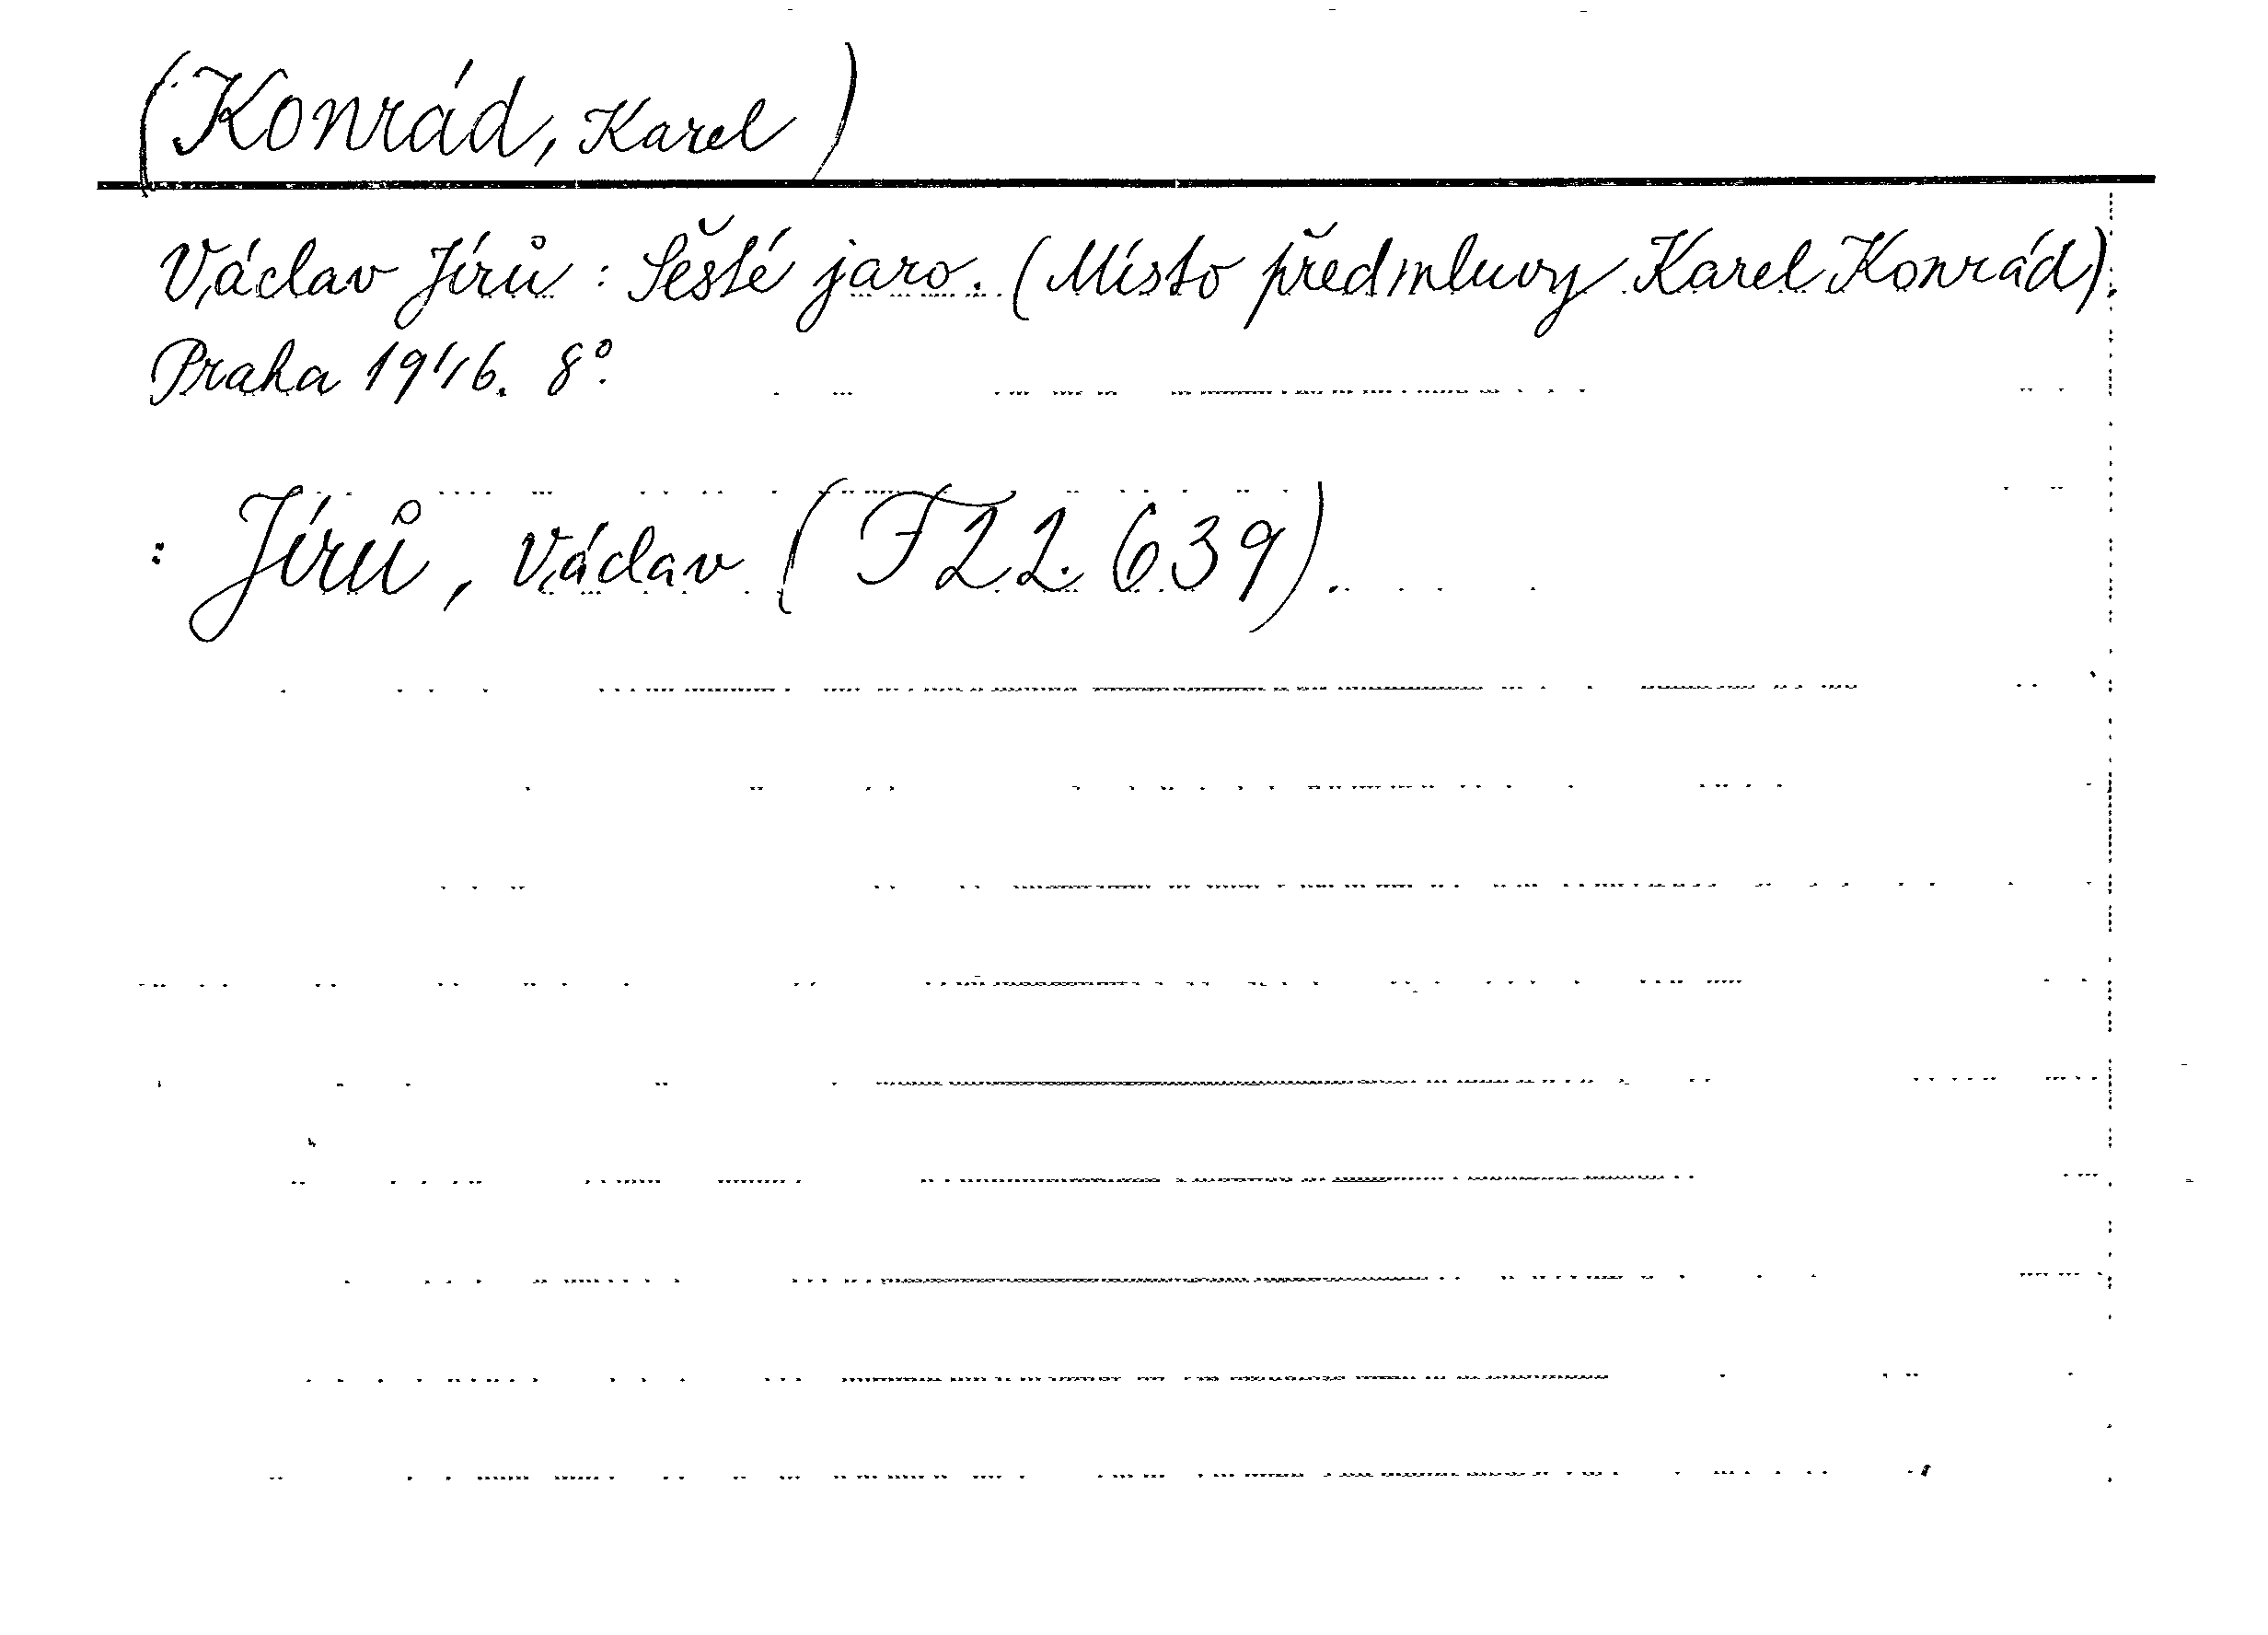 (Konrád, Karel)
Václav Jírů : Šesté jaro. (Místo předmluvy Karel Konrád).
Praha 1946. 8°.
: Jírů, Václav (F 22.639).